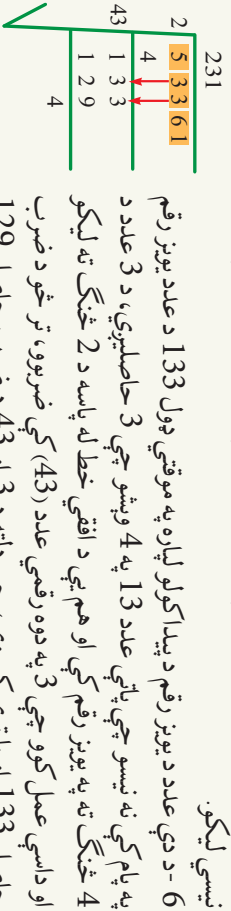 نسي ليکو.
6 - د دې عدد د يويز رقم د پيدا کولو لپاره په موقتي ډول 133 د عدد يويز رقم
په پام کې نه نيسو چې پاتې عدد 13 په 4 وېشو چې 3 حاصليږي، د 3 عدد د
4 څنګ ته په يويز رقم کې او هم يې د افقي خط له پاسه د 2 څنګ ته ليکو
او داسې عمل کوو چې 3 په دوه رقمي عدد (43) کې ضربوو، تر څو د ضرب
231
2
5 3 3 6 1
4
43
1 3 3
1 2 9
4